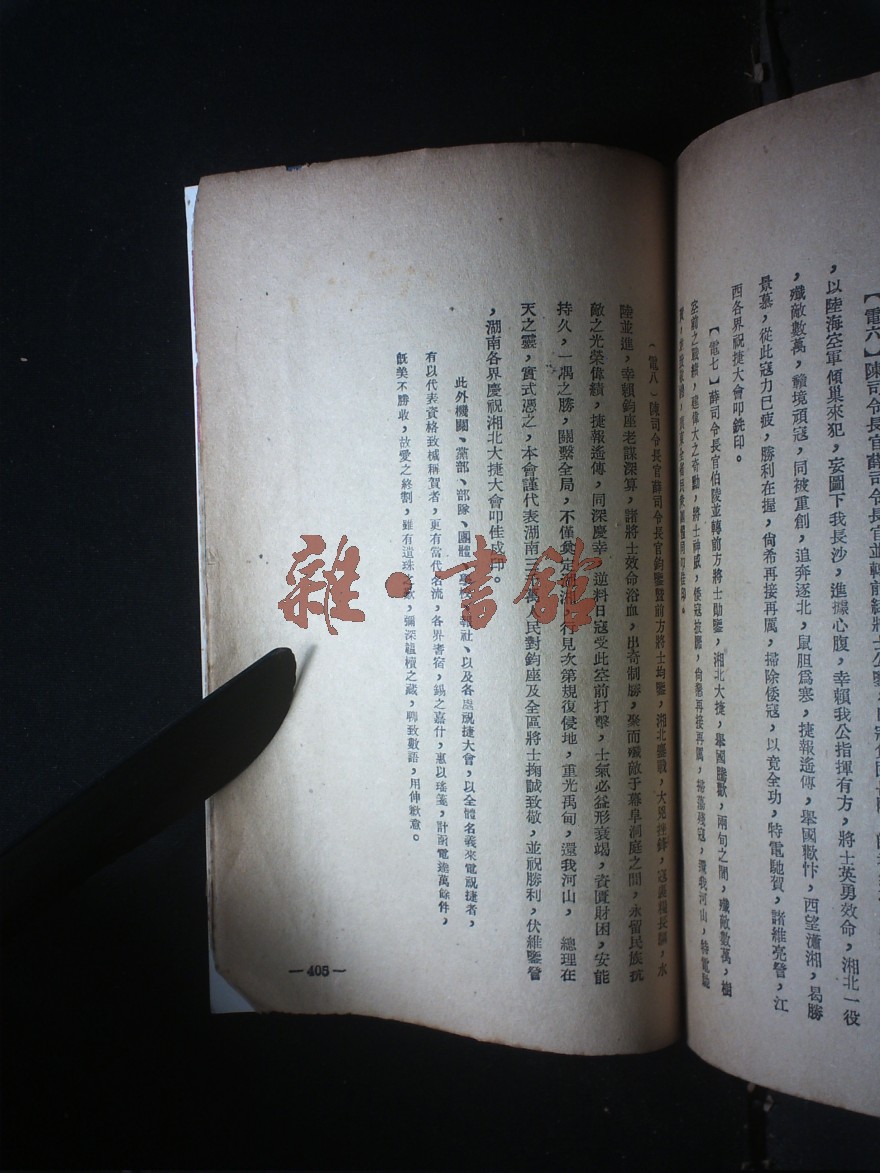 【電六】陳司令長官薛司令長官並轉前線將士公鑒
，以陸海空軍傾巢來犯，妄圖下我長沙，進據心腹，幸賴我公指揮有方，將士英勇效命，湘北一役
，殲敵數萬，贛境頑寇，同被重創，追奔逐北，鼠胆為寒，捷報遙傳，舉國歡忭，西望瀟湘，曷勝
景慕，從此寇力已疲，勝利在握，尙希再接再厲，掃除倭寇，以竟全功，特電馳賀，諸維亮詧，江
西各界祝捷大會叩銑印。
【電七】薛司令長官伯陵並轉前方將士勛鑒，湘北大捷，舉國騰歡，兩旬之間，殲敵數萬，樹
空前之戰績，建偉大之奇勳，將士神威，倭寇披靡，尙懇再接再厲，掃蕩殘寇，還我河山，特電馳
（電八）陳司令長官薛司令長官鈞鑒暨前方將士均鑒，湘北鏖戰，大兇挫鋒，寇裹糧長驅，水
陸並進，幸賴鈞座老謀深算，諸將士效命浴血，出奇制勝，聚而殲敵于幕阜洞庭之間，永留民族抗
敵之光榮偉績，捷報遙傳，同深慶幸，逆料日寇受此空前打擊，士氣必益形衰竭，資匱財困，安能
持久，一隅之勝，關繫全局，不僅奠定湖湘，行見次第規復侵地，重光禹甸，還我河山，總理在
天之靈，實式憑之，本會謹代表湖南三千萬人民對鈞座及全區將士掬誠致敬，並祝勝利，伏維鑒詧
，湖南各界慶祝湘北大捷大會叩佳戍印。
此外機關、黨部、部隊、團體、學校、報社、以及各處祝捷大會，以全體名義來電祝捷者，
有以代表資格致械稱賀者，更有當代名流，各界耆宿，錫之嘉什，惠以瑤箋，計函電逾萬餘件，
旣美不勝收，故愛之終割，雖有遺珠之歎，彌深韞櫝之藏，聊致數語，用伸歉意。
—405—
雜·書館